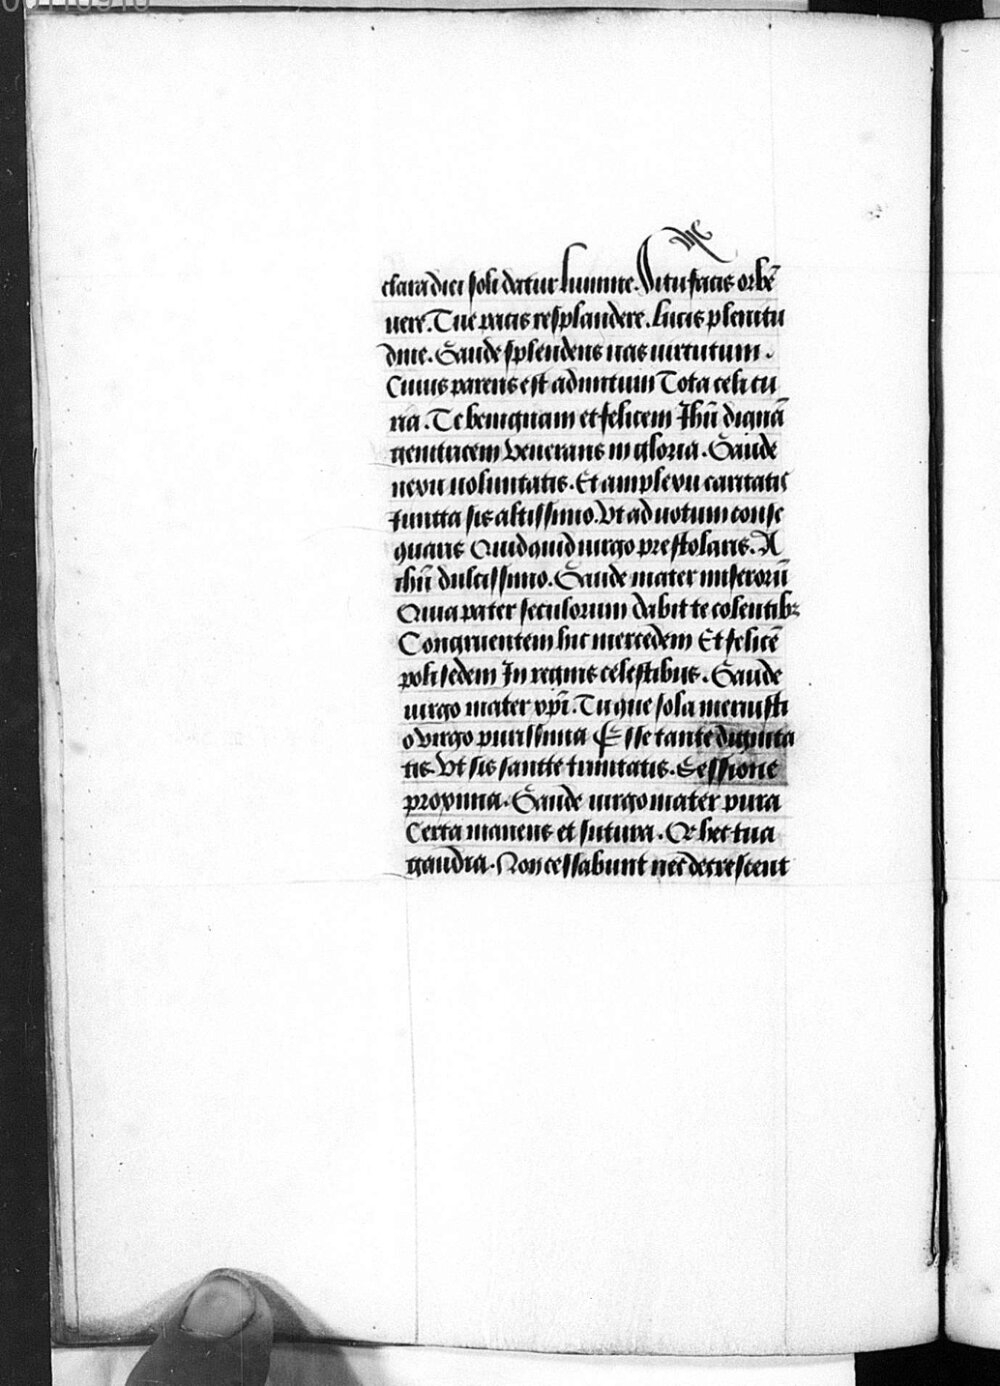 clara diei soli datur lumine. Ita tu facis orbē
vere. Tue pacis resplandere. Lucis plenitu
dine. Gaude splendens uas uirtutum.
Cuius parens est ad nutum Tota celi cu
ria. Te benignam et felicem Jhū dignā
genitricem Venerans in gloria. Gaude
nexu uoluntatis. Et amplexu caritatis
Juncta sic altissimo. Vt ad uotum conse
quaris Quidquid uirgo prestolaris. A
ihū dulcissimo. Gaude mater miserorū
Quia pater seculorum dabit te colentibꝫ
Congruentem hic mercedem Et felicē
poli sedem In regnis celestibus. Gaude
uirgo mater xpī. Tu que sola meruisti
o Virgo purissima Esse tante dignita
tis. Vt sis sancte trinitatis. Sessione
proxima. Gaude uirgo mater pura
Certa manens et secura. Qr hec tua
gaudia. Non cessabunt nec decrescent